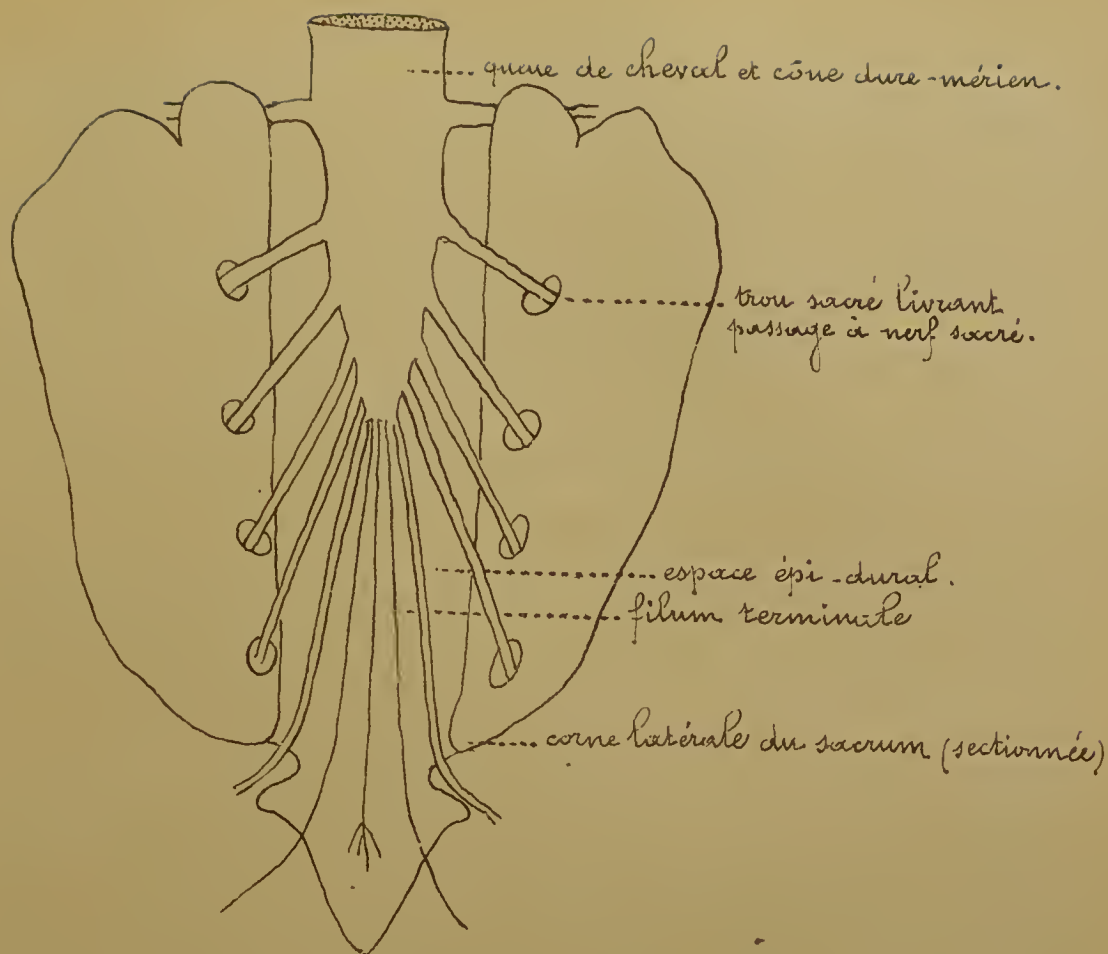 queue de cheval et cône dure-mérien.
trou sacré livrant
passage à nerf sacré.
espace épi-dural.
filum terminale
corne latérale du sacrum (sectionnée)